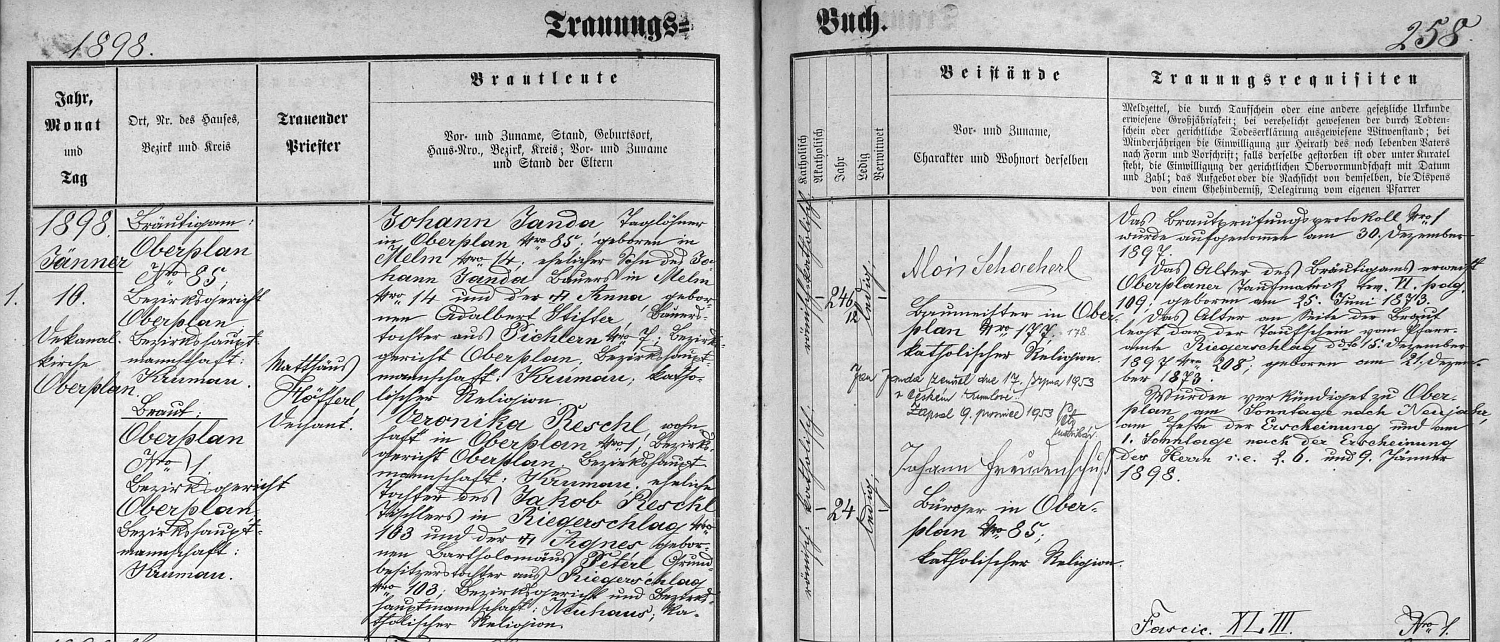 1898.
Trauungs=
Buch.
258.
Jahr,
Monat
und
Tag
Ort, Nr. des Hauses,
Bezirk und Kreis
Trauender
Priester
Brautleute
Vor- und Zuname, Stand, Geburtsort,
Haus-Nro., Bezirk, Kreis; Vor- und Zuname
und Stand der Eltern
Katholisch
Akatholisch
Jahr
Ledig
Verwitwet
Beistände
Vor- und Zuname,
Charakter und Wohnort derselben
Trauungsrequisiten
Meldzettel, die durch Taufschein oder eine andere gesetzliche Urkunde
erwiesene Großjährigkeit; bei verehelicht gewesenen der durch Todten-
schein oder gerichtliche Todeserklärung ausgewiesene Witwenstand; bei
Minderjährigen die Einwilligung zur Heirath des noch lebenden Vaters
nach Form und Vorschrift; falls derselbe gestorben ist oder unter Kuratel
steht, die Einwilligung der gerichtlichen Obervormundschaft mit Datum
und Zahl; das Aufgebot oder die Nachsicht von demselben, die Dispens
von einem Ehehinderniß, Delegirung vom eigenen Pfarrer
1.
1898.
Jänner
10.
Dekanal-
kirche
Oberplan.
Bräutigam:
Oberplan
Nro 85,
Bezirksgericht
Oberplan
Bezirkshaupt
mannschaft:
Krumau.
Braut:
Oberplan
Nro 1.
Bezirksgericht
Oberplan,
Bezirkshaupt-
mannschaft:
Krumau.
Matthäus
Hofferl
Dechant.
Johann Janda Taglöhner
in Oberplan Nro 85. geboren in
Melm Nro 14. ehelicher Sohn des Jo-
hann Janda Bauers in Melm
Nro 14 und der Anna, gebor-
nen Adalbert Stifter, Bauers-
tochter aus Pichlern Nro 7, Bezirk-
gericht Oberplan, Bezirkshaupt
mannschaft: Krumau; katho-
lischer Religion.
Veronika Reschl, wohn
haft in Oberplan Nro 1, Bezirks-
gericht Oberplan, Bezirkshaupt
mannschaft: Krumau, eheliche
Tochter des Jakob Reschl
Tischlers in Riegerschlag Nro
103 und der Agnes gebor-
nen Bartholomäus Peterl Grund
besitzerstochter aus Riegerschlag
Nro 103; Bezirksgericht und Bezirks-
hauptmannschaft: Neuhaus; ka-
tholischer Religion.
römisch-katholisch.
24 6/12
ledig.
römisch-katholisch.
24
ledig.
Alois Schocherl
Baumeister in Ober
plan Nro 177. 178.
katholischer Religion.
Jan Janda zemřel dne 17. srpna 1953
v Českém Krumlově.
Zapsal 9. prosince 1953
Johann Freudenschuß
Bürger in Ober-
plan Nro 85;
katholischer Religion.
Das Brautprüfungsprotokoll Nro 1
wurde aufgenommen am 30. Dezember
1897.
Das Alter des Bräutigams erweist
Oberplaner Taufmatrik tom. VI. pag.
109! geboren am 25. Juni 1873.
Das Alter an Seite der Braut
legt dar der Taufschein vom Pfarr-
amte Riegerschlag ddto 15. Dezember
1897 Nro 208; geboren am 21. Dezem-
ber 1873.
Wurden verkündiget zu Ober-
plan am Sonntage nach Neujahr,
am Feste der Erscheinung und am
1. Sonntage nach der Erscheinung
des Herrn i. e. 2. 6. und 9. Jänner
1898.
Fascic. XLIII. Nro 1.